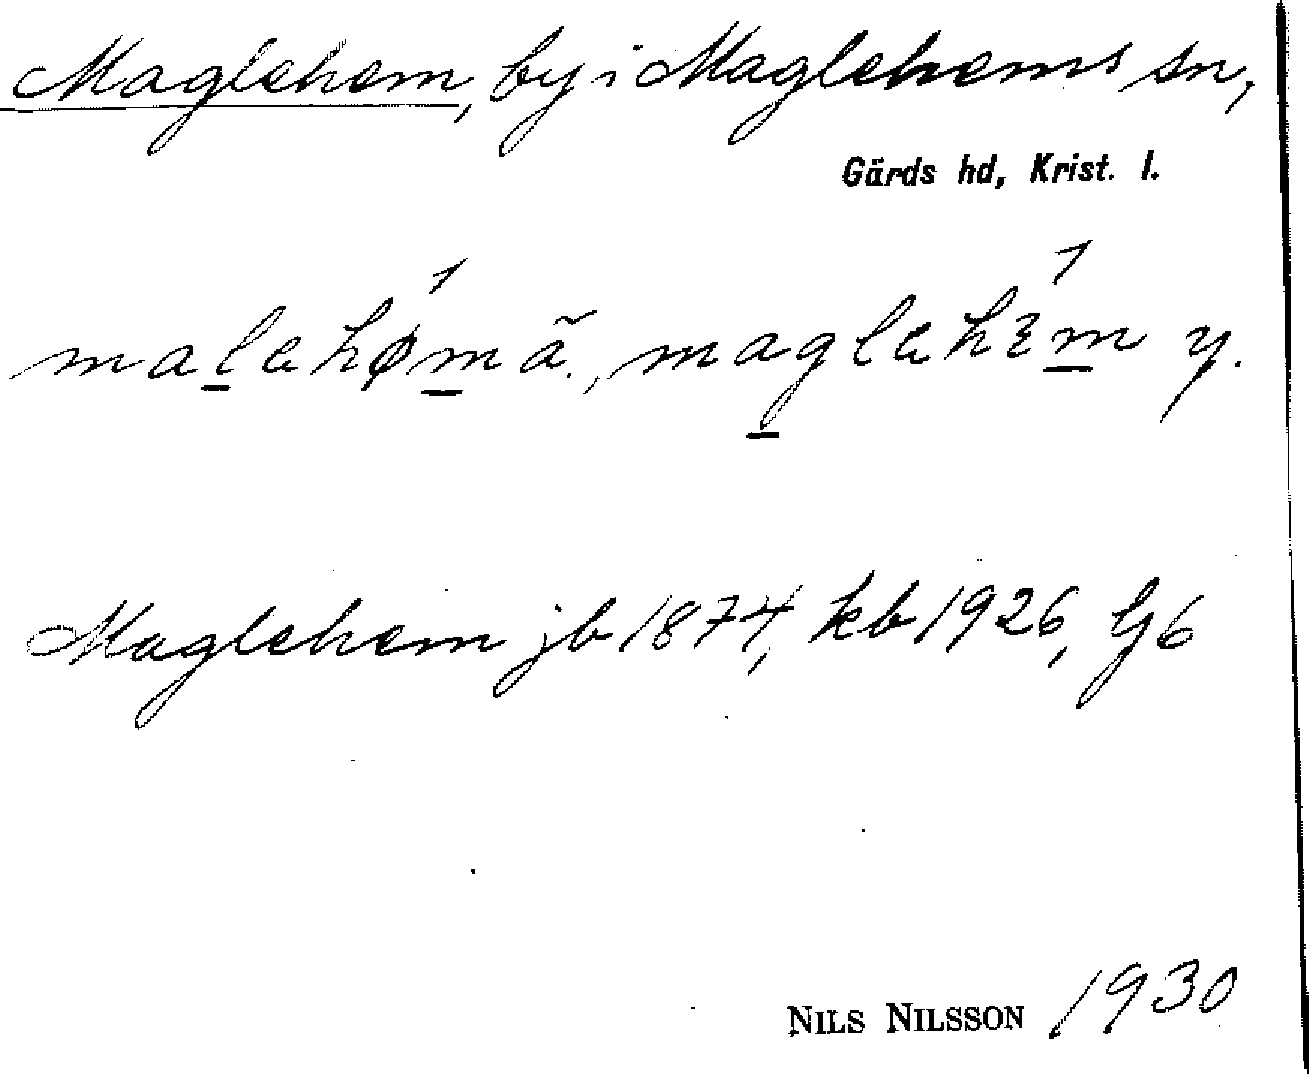 Maglehem, by i Maglehems sn,
Gärds hd, Krist. l.
malehǿm ä., maglehɛ́m y.
Maglehem jb 1874, kb 1926, Gj6
NILS NILSSON 1930